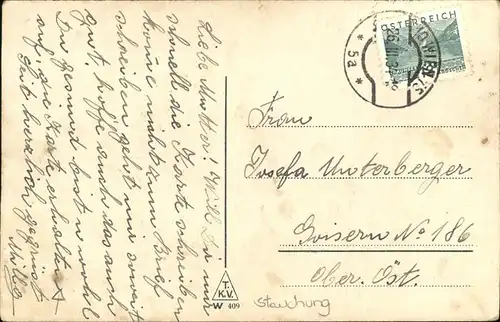 Liebe Mutter! Will Dir nur
schnell die Karte schreiben
komme nicht zum Brief
schreiben geht mir soweit
gut, hoffe auch das auch
Du gesund bist u. wohl
auf, die Karte erhalten
herzlich gegrüsst
ÖSTERREICH
WIEN
* 5a *
Frau
Josefa Unterberger
Goisern No 186
Ober. Öst.
T.
K.V.
W 409
Stauchung